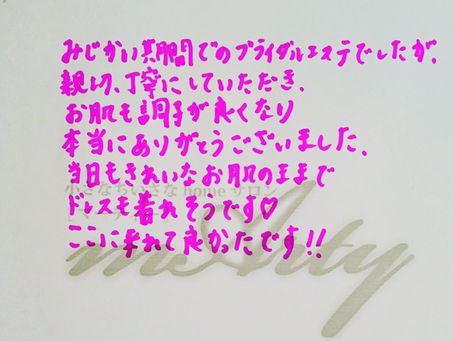 みじかい期間でのブライダルエステでしたが、
親切、丁寧にしていただき、
お肌も調子が良くなり
本当にありがとうございました。
当日もきれいなお肌のままで
小さなちいさな home サロン
ドレスも着れそうです♡
ここに来れて良かたです!!
mcArty